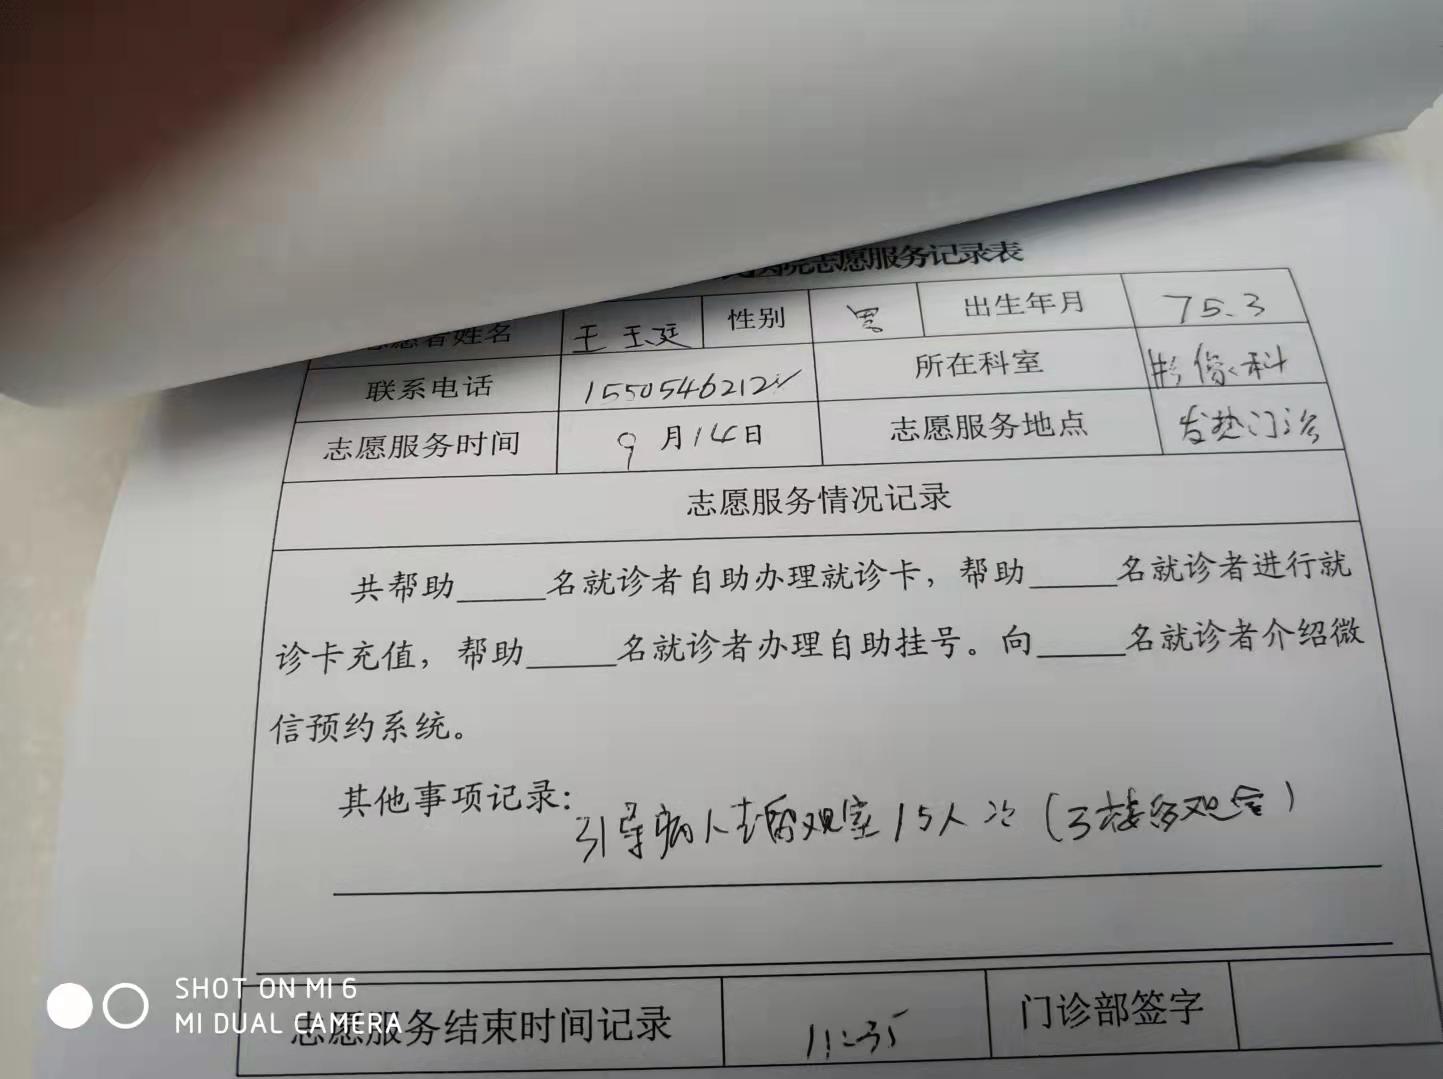 志愿服务记录表
愿者姓名 王玉廷 性别 男 出生年月 75.3
联系电话 所在科室 影像科
志愿服务时间 9月14日 志愿服务地点 发热门诊
志愿服务情况记录
共帮助_____名就诊者自助办理就诊卡，帮助_____名就诊者进行就
诊卡充值，帮助_____名就诊者办理自助挂号。向_____名就诊者介绍微
信预约系统。
其他事项记录：引导病人去留观室15人次（3楼留观室）
志愿服务结束时间记录 11:35 门诊部签字
SHOT ON MI 6
MI DUAL CAMERA